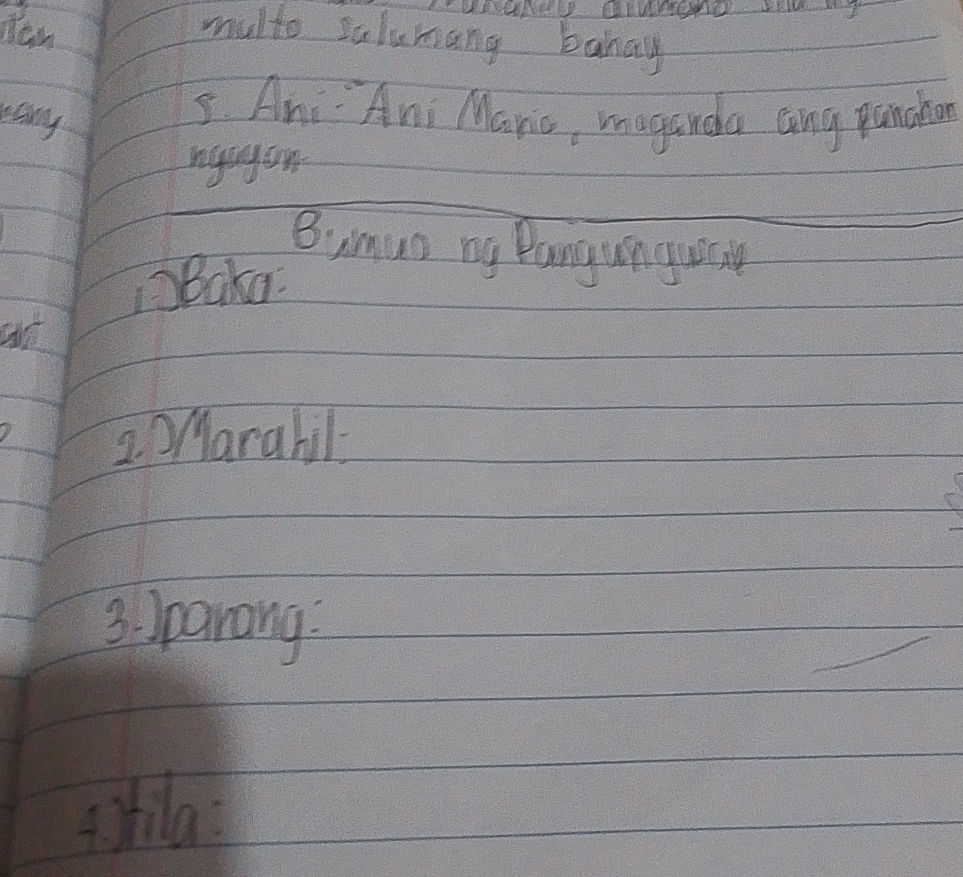 multo salumang bahay
5. Ani-Ani Maria, maganda ang panahon
ngayon
Bumuo ng Pangungusap
1.) Baka:
2.) Marahil:
3.) parang:
4.) tila: